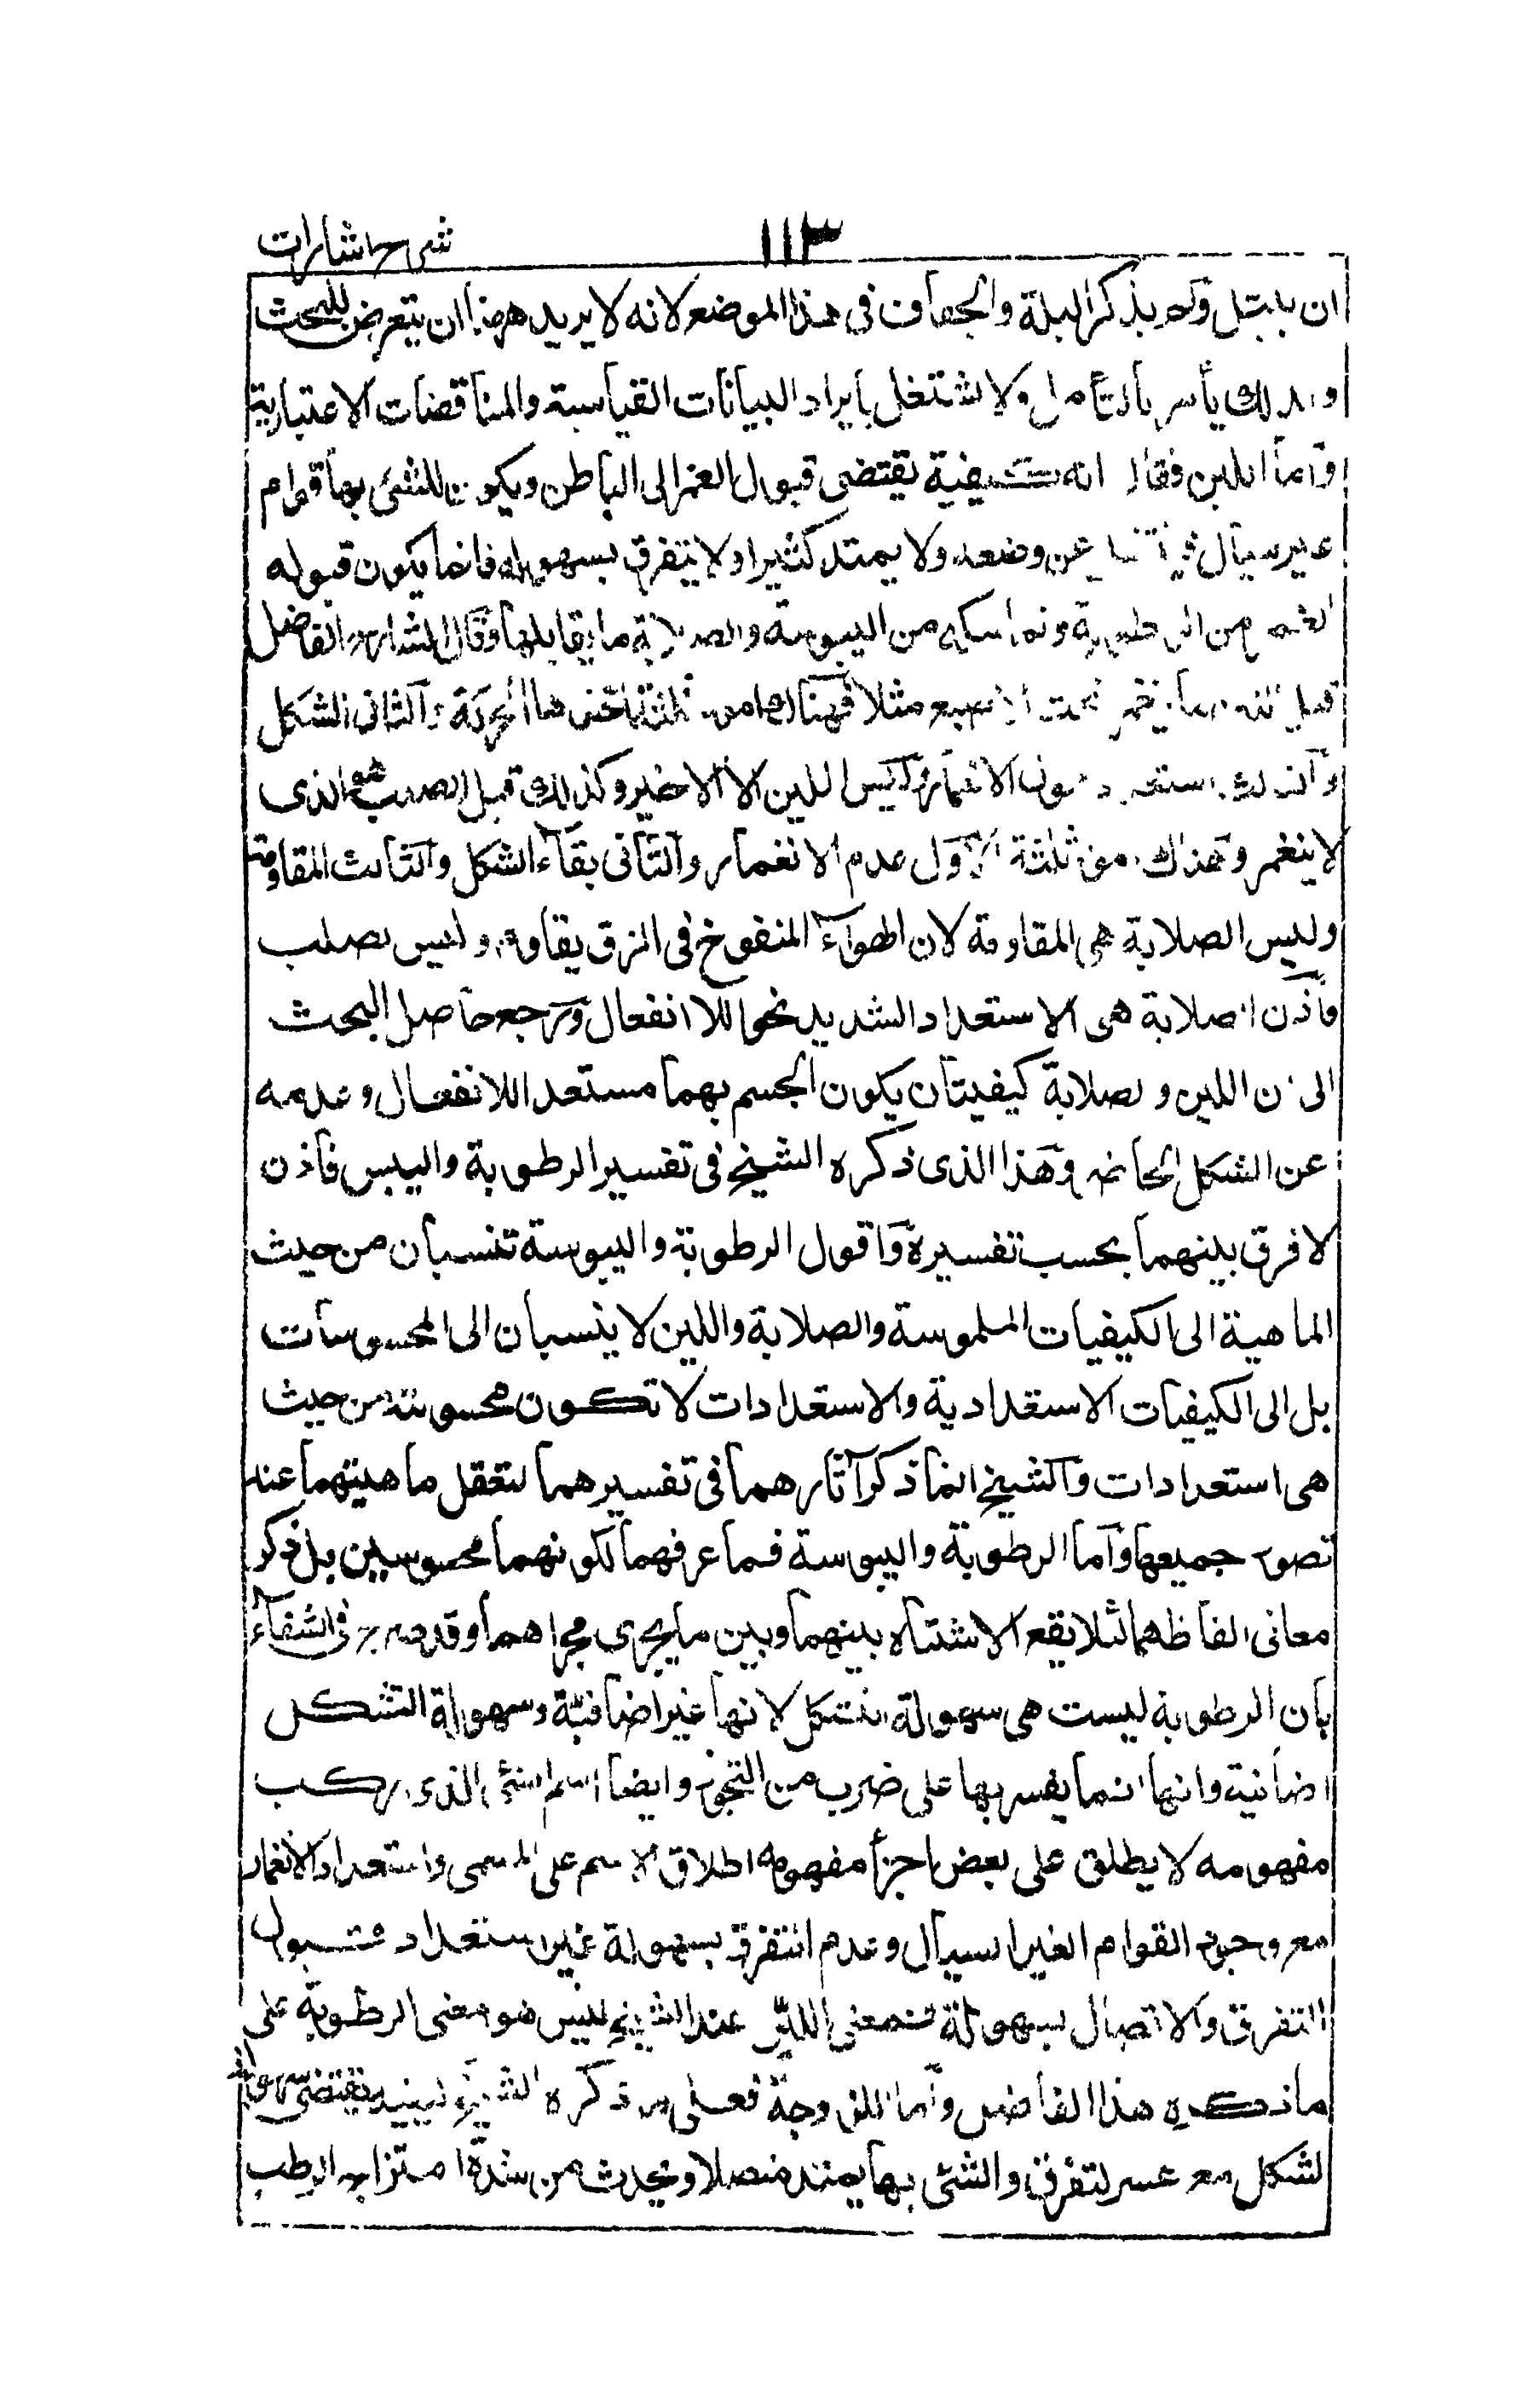 ١١٣ شرح اشارات
ان يابتل ولم يذكر البلة والجفاف فى هذا الموضع لانه لا يريد ههنا ان يتعرض للبحث
ولذلك يأمر بالتأمل ولا يشتغل بايراد البيانات القياسية والمناقضات الاعتبارية
واما اللين فقال انه كيفية يقتضى قبول الغمز الى الباطن ويكون للشئ بها قوام
غير سيال عن وضعه ولا يمتد كثيرا ولا يتفرق بسهولة فانما يكون قبوله
الغمز من الرطوبة وتماسكه من اليبوسة والصلابة ما يقابلها وقال الشارح الفاضل
قيل اللين ما ينغمز تحت الاصبع مثلا فهناك امور ثلثة احدها الحركة والثانى الشكل
والثالث استعداد قبول الانغماز وليس اللين الا الاخير وكذلك قيل الصلب هو الذى
لا ينغمز وهناك امور ثلثة الاول عدم الانغماز والثانى بقاء الشكل والثالث المقاومة
وليس الصلابة هى المقاومة لان الهواء المنفوخ فى الزق يقاوم وليس بصلب
فاذن الصلابة هى الاستعداد الشديد نحو اللا انفعال ويرجع حاصل البحث
الى ان اللين والصلابة كيفيتان يكون الجسم بهما مستعدا للانفعال وعدمه
عن الشكل الحاضر وهذا الذى ذكره الشيخ فى تفسير الرطوبة واليبس فاذن
لا فرق بينهما بحسب تفسيره واقول الرطوبة واليبوسة تنسبان من حيث
الماهية الى الكيفيات الملموسة والصلابة واللين لا ينسبان الى المحسوسات
بل الى الكيفيات الاستعدادية والاستعدادات لا تكون محسوسة من حيث
هى استعدادات والشيخ انما ذكر آثارهما فى تفسيرهما لتعقل ماهيتهما عند
تصور جميعها واما الرطوبة واليبوسة فما عرفهما لكونهما محسوسين بل ذكر
معانى الفاظهما لئلا يقع الاشتباه بينهما وبين ما يجرى مجراهما وقد صرح فى الشفاء
بان الرطوبة ليست هى سهولة التشكل لانها غير اضافية وسهولة التشكل
اضافية وانها انما يفسر بها على ضرب من التجوز وايضا اسم الشئ الذى يركب
مفهومه لا يطلق على بعض اجزاء مفهومه اطلاق الاسم على المسمى واستعداد الانغماز
مع وجود القوام الغير السيال وعدم التفرق بسهولة غير استعداد قبول
التفرق والاتصال بسهولة فمعنى اللين عند الشيخ ليس هو معنى الرطوبة على
ما ذكره هذا الفاضل واما اللزوجة فعلى ما ذكره الشيخ كيفية يقتضى سهولة
لشكل مع عسر لتفرق والشئ بها يمتد متصلا ويحدث من شدة امتزاج الرطب